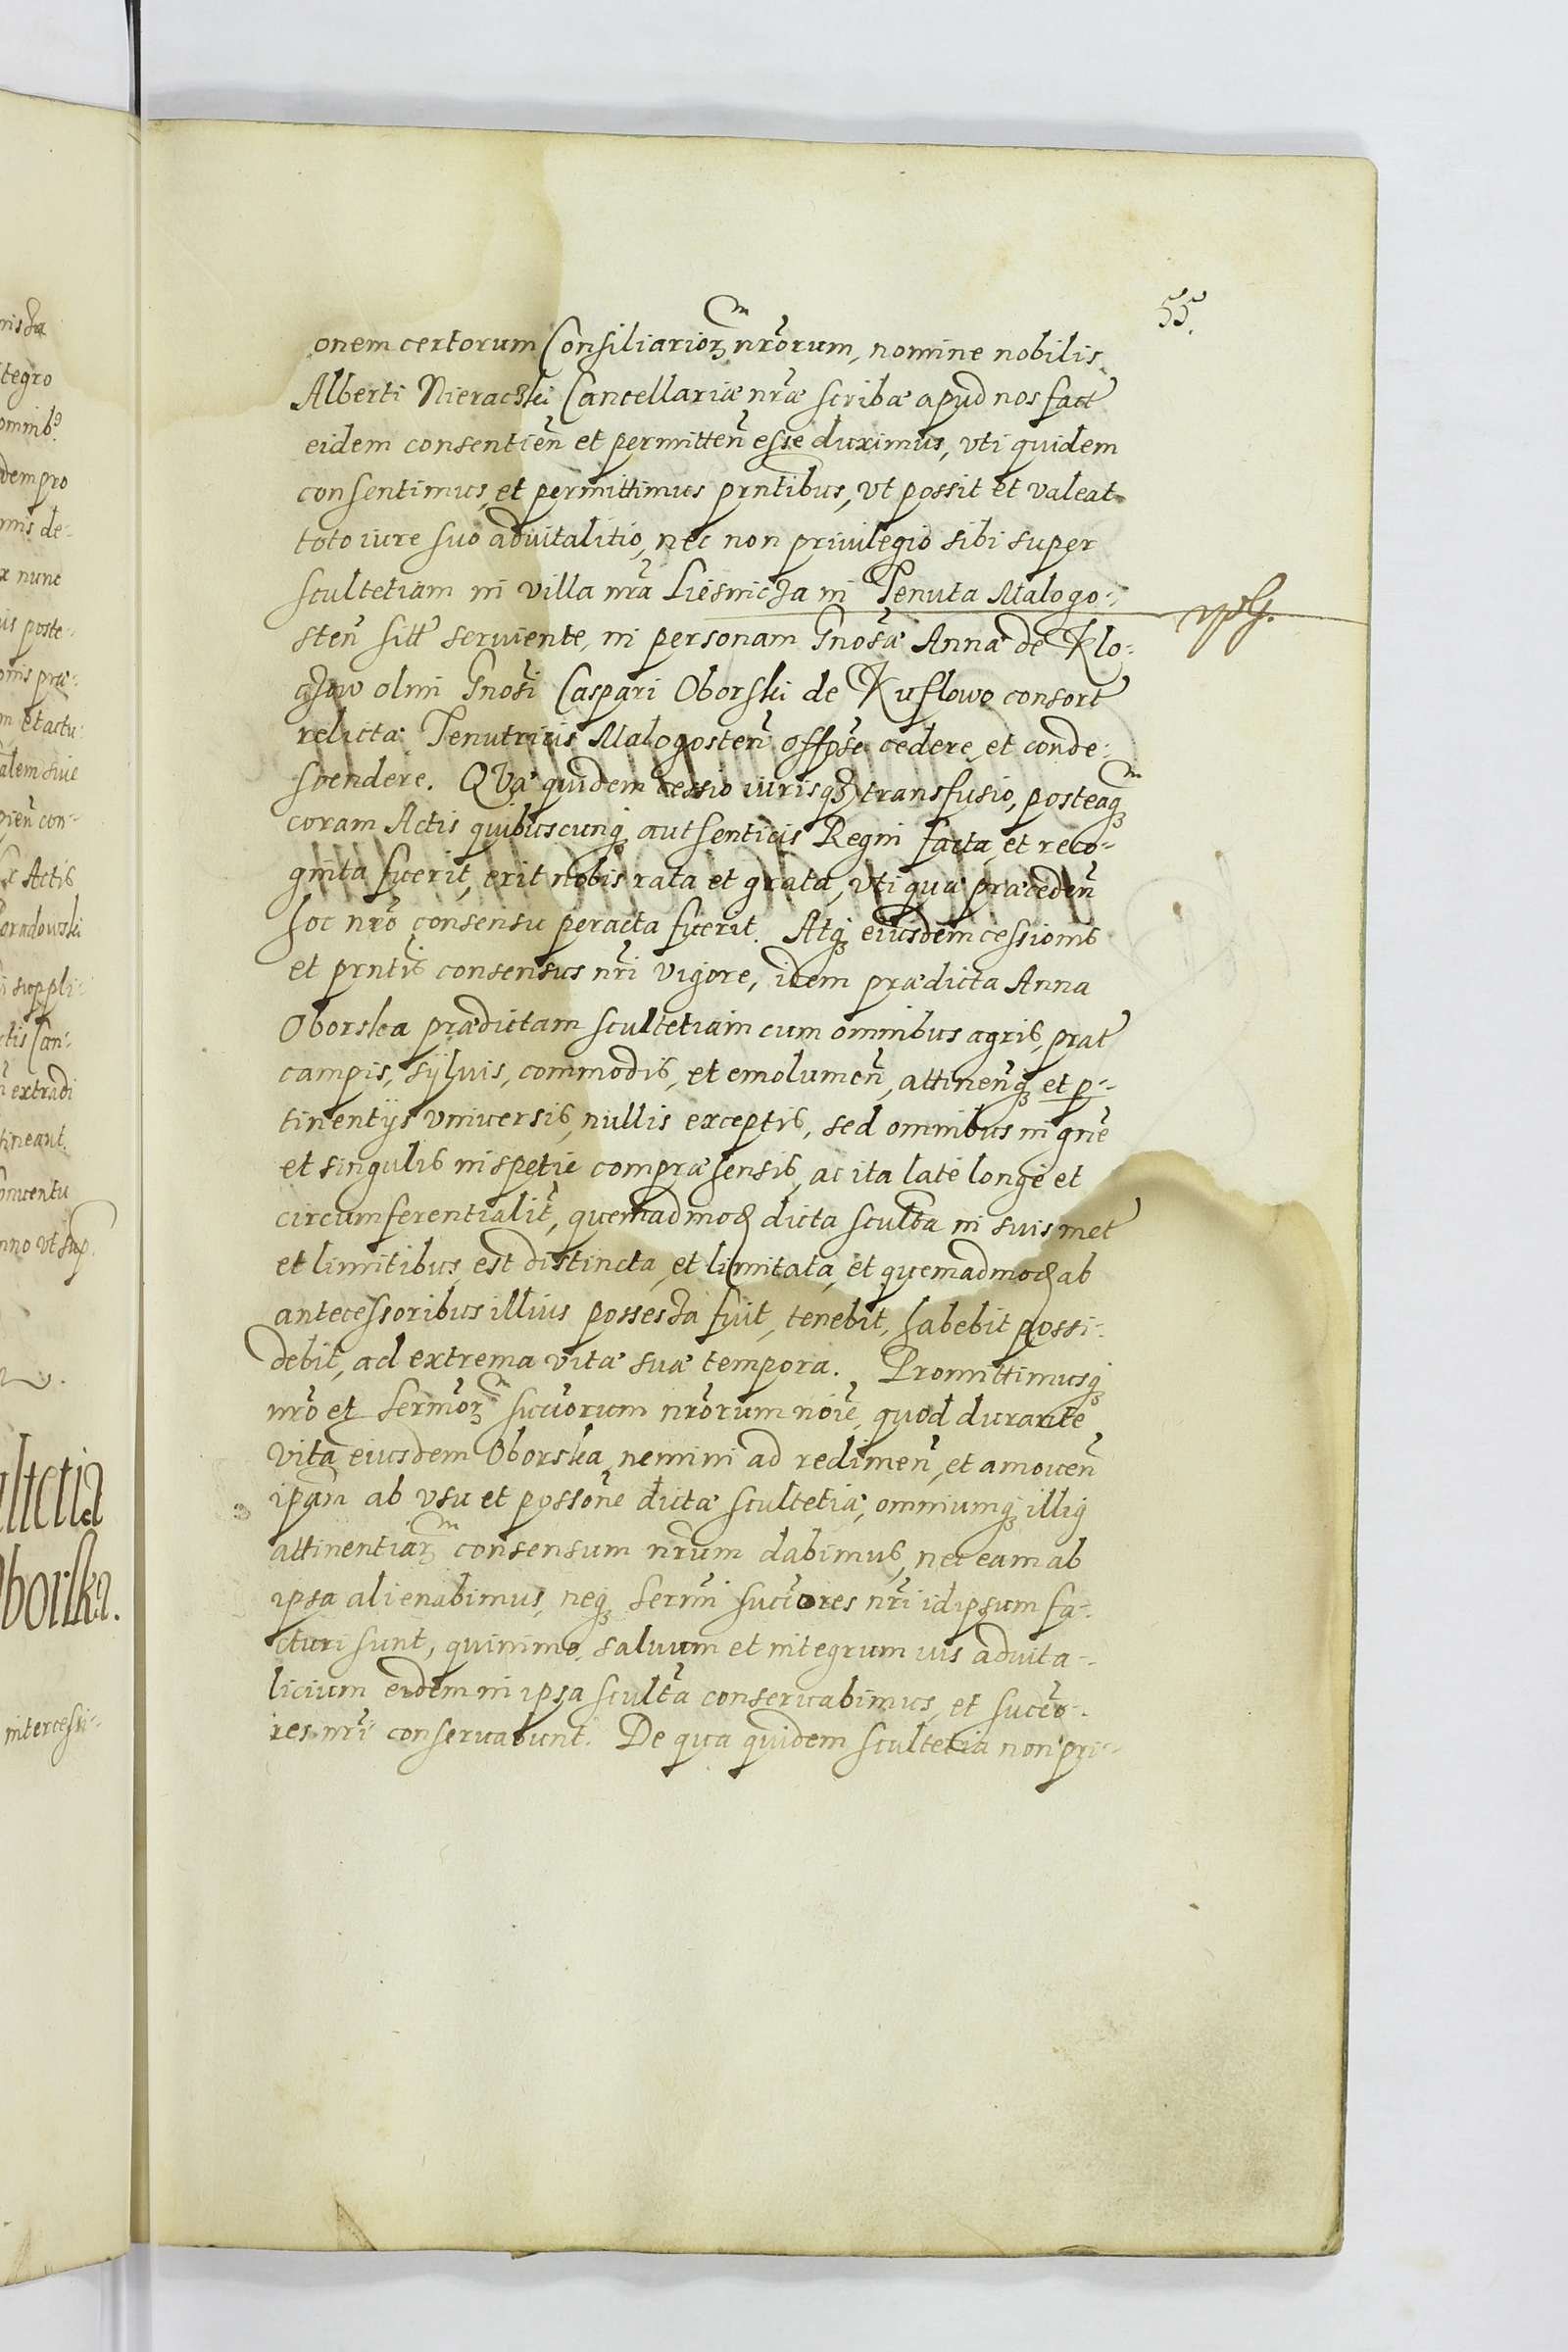 55.
onem certorum Consiliarioꝝ nr̃orum, nomine nobilis
Alberti Nieraczki Cancellariæ nr̃æ scribæ apud nos fact
eidem consentien̄ et permitten̄ esse duximus, vti quidem
consentimus, et permittimus prntibus, vt possit et valeat
toto iure suo aduitalitio, nec non priuilegio sibi super
scultetiam in villa nr̃a Liesnicza in Tenuta Malogo-
sten̄ sitt seruiente, in personam Gnosæ Annæ de Klo-
chow olim Gnosi Caspari Oborski de Kuflowo consort
relictæ Tenutricis Malogosten̄ cedere et conde-
scendere. Quæ quidem cessio iurisqꝫ transfusio, posteaqꝫ
coram Actis quibuscunqꝫ authenticis Regni facta et reco-
gnita fuerit, erit nobis rata et grata, vti quæ præceden̄
hoc nr̃o consensu peracta fuerit. Atqꝫ eiusdem cessionis
et prntis consensus nr̃i vigore, idem prædicta Anna
Oborska prædictam scultetiam cum omnibus agris, prat
campis, syluis, commodis, et emolumen̄, attinen̄qꝫ et p-
tinentijs vniuersis, nullis exceptis, sed omnibus in gn̄e
et singulis in spetie compræhensis, ac ita late longe et
circumferentialit̄, quemadmod dicta sculta in suis met
et limitibus est distincta, et limitata, et quemadmod ab
antecessoribus illius possessa fuit, tenebit, habebit possi-
debit, ad extrema vitæ suæ tempora. Promittimusqꝫ
nr̃o et Sermoꝝ succorum nr̃orum noie, quod durante
vita eiusdem Oborska, nemini ad redimen̄, et amouen̄
ipam ab vsu et possone dictæ scultetiæ, omniumqꝫ illiꝰ
attinentiaꝝ consensum nr̃um dabimus, nec eam ab
ipsa alienabimus, neqꝫ Sermi succores nr̃i id ipsum fa-
cturi sunt, quinimo saluum et integrum ius aduita-
licium eidem in ipsa sculta conseruabimus, et succo-
res nr̃i conseruabunt. De qua quidem scultetia non pri-